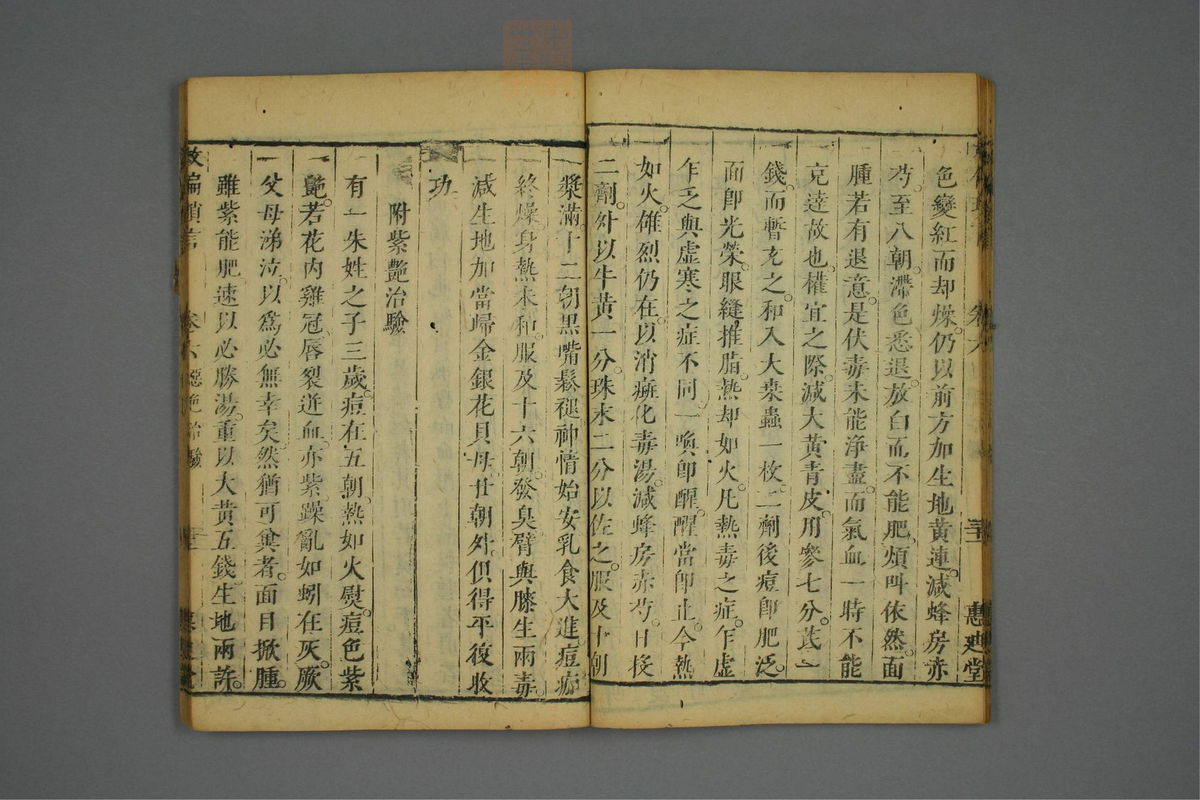 色變紅而却燥仍以前方加生地黃連減蜂房赤
芍至八朝滯色悉退放白而不能肥煩呌依然面
腫若有退意是伏毒未能淨盡而氣血一時不能
克達故也權宜之際減大黃青皮用參七分芪一
錢而暫充之和入大桑蟲一枚二劑後痘即肥泛
面即光榮眼縫推脂熱却如火凡熱毒之症乍虛
乍乏與虛寒之症不同一喚即醒醒當即止今熱
如火雄烈仍在以消癍化毒湯減蜂房赤芍日投
二劑外以牛黃一分珠末二分以佐之服及十朝
漿滿十二朝黑嘴鬆褪神情始安乳食大進痘痂
終燥身熱未和服及十六朝發臭臂與膝生兩毒
減生地加當歸金銀花貝母廿朝外俱得平復收
功
附紫艷治驗
有一朱姓之子三歲痘在五朝熱如火熨痘色紫
艷若花內雞冠唇裂迸血亦紫躁亂如蚓在灰厥
父母涕泣以為必無幸矣然猶可兾者面目掀腫
雖紫能肥速以必勝湯重以大黃五錢生地兩許
救偏瑣言 卷六 惡艷治驗
惠迪堂